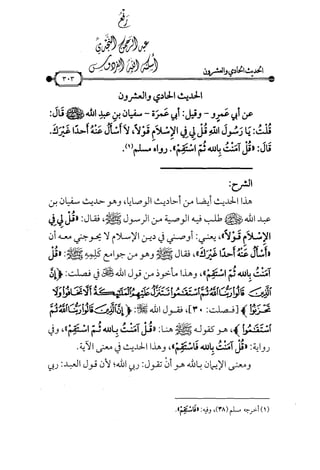 رفع
عبد الرحمن النجدي
أسكنه الله الفردوس
الحديث الحادي والعشرون
٣٠٣
الحديث الحادي والعشرون
عن أبي عمرو - وقيل: أبي عَمْرَة - سفيان بن عبد الله ﷺ قَالَ:
قُلْتُ: يَا رَسُولَ اللهِ قُلْ لِي فِي الإِسْلَامِ قَوْلًا، لَا أَسْأَلُ عَنْهُ أَحَدًا غَيْرَكَ.
قَالَ: «قُلْ آمَنْتُ بِاللهِ ثُمَّ اسْتَقِمْ». رواه مسلم(١).
الشرح:
هذا الحديث أيضا من أحاديث الوصايا، وهو حديث سفيان بن
عبد الله طلب فيه الوصية من الرسول ﷺ، فقال: «قُلْ لِي فِي
الإِسْلَامِ قَوْلًا»، يعني: أوصني في دين الإسلام لا يحوجني معه أن
«أَسْأَلُ عَنْهُ أَحَدًا غَيْرَكَ»، فقال ﷺ وهو من جوامع كَلِمِه ﷺ: «قُلْ
آمَنْتُ بِاللهِ ثُمَّ اسْتَقِمْ»، وهذا مأخوذ من قول الله في فصلت: ﴿إِنَّ
الَّذِينَ قَالُوا رَبُّنَا اللَّهُ ثُمَّ اسْتَقَامُوا تَتَنَزَّلُ عَلَيْهِمُ الْمَلَائِكَةُ أَلَّا تَخَافُوا وَلَا
تَحْزَنُوا﴾ [فصلت: ٣٠]، فقول الله : ﴿إِنَّ الَّذِينَ قَالُوا رَبُّنَا اللَّهُ ثُمَّ
اسْتَقَامُوا﴾، هو كقوله ﷺ هنا: «قُلْ آمَنْتُ بِاللهِ ثُمَّ اسْتَقِمْ»، وفي
رواية: «قُلْ آمَنْتُ بِاللهِ فَاسْتَقِمْ»، وهذا الحديث في معنى الآية.
ومعنى الإيمان بالله هو أن تقول: ربي الله؛ لأن قول العبد: ربي
(١) أخرجه مسلم (٣٨)، وفيه: «فَاسْتَقِمْ».